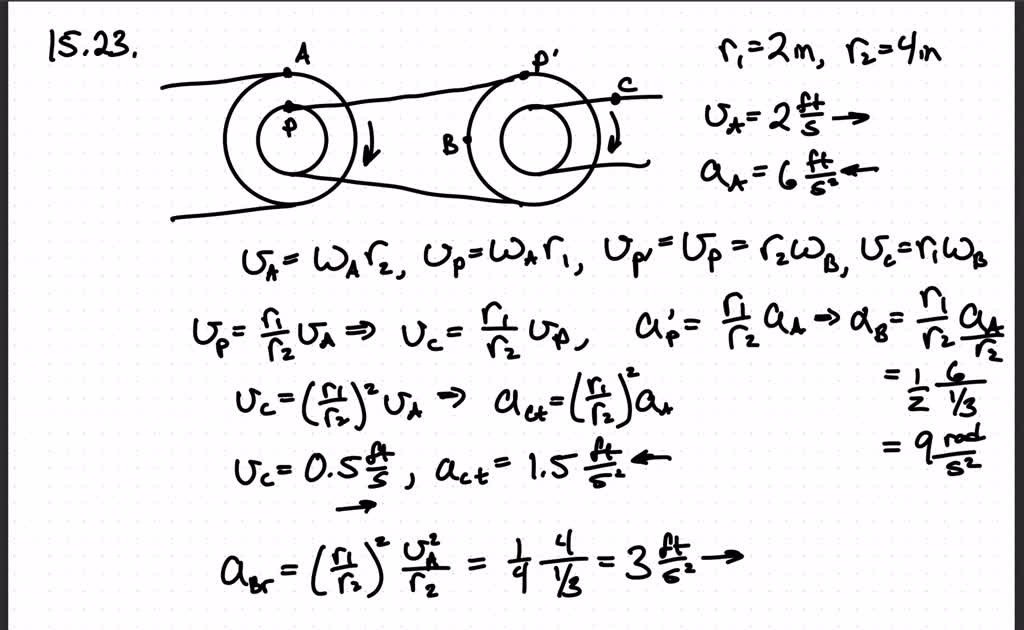 15.23.
A P' C P B
r₁=2in, r₂=4in
v_A = 2 ft/s →
a_A = 6 ft/s² ←
v_A = ω_A r₂, v_P = ω_A r₁, v_P' = v_P = r₂ω_B, v_C = r₁ω_B
v_P = r₁/r₂ v_A ⇒ v_C = r₁/r₂ v_P, a'_P = r₁/r₂ a_A → α_B = r₁/r₂ a_A/r₂
= 1/2 6/1/3
v_C = (r₁/r₂)² v_A ⇒ a_ct = (r₁/r₂)² a_A
= 9 rad/s²
v_C = 0.5 ft/s →, a_ct = 1.5 ft/s² ←
a_Br = (r₁/r₂)² v_A²/r₂ = 1/4 4/1/3 = 3 ft/s² →